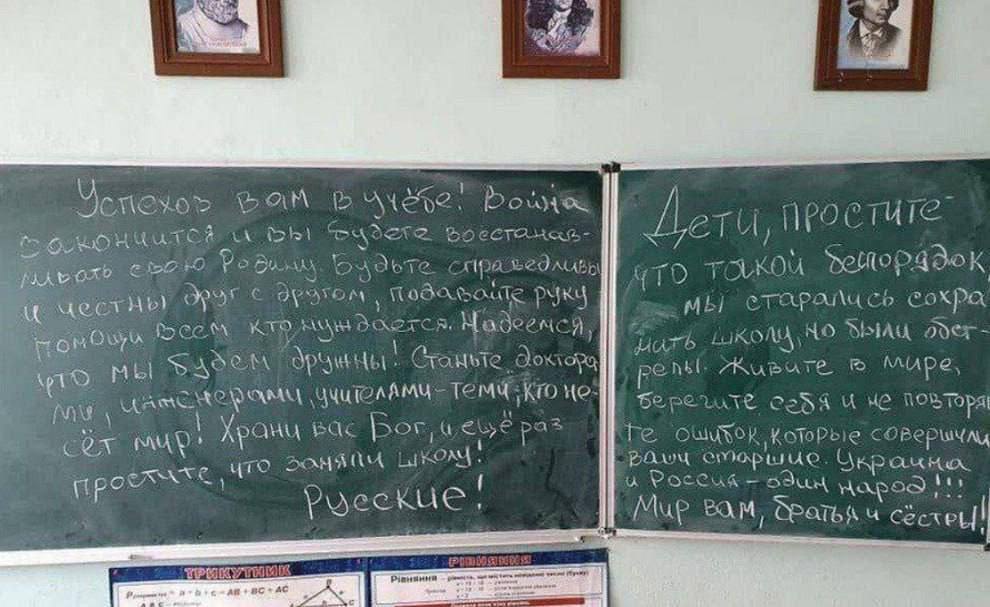 Успехов вам в учёбе! Война
закончится и вы будете восстанав-
ливать свою Родину. Будьте справедливы
и честны друг с другом, подавайте руку
помощи всем кто нуждается. Надеемся,
что мы будем дружны! Станьте доктора-
ми, инженерами, учителями - теми, кто не-
сёт мир! Храни вас Бог, и ещё раз
простите, что заняли школу!
Русские!
Дети, простите
что такой беспорядок,
мы старались сохра
нить школу, но были обст-
релы. Живите в мире,
берегите себя и не повторяй
те ошибок, которые совершили
ваши старшие. Украина
и Россия - один народ!!!
Мир вам, братья и сёстры!
ТРИКУТНИК
a + b + c = AB + BC + AC
РІВНЯННЯ
Рівняння – рівність, що містить невідоме число (букву)